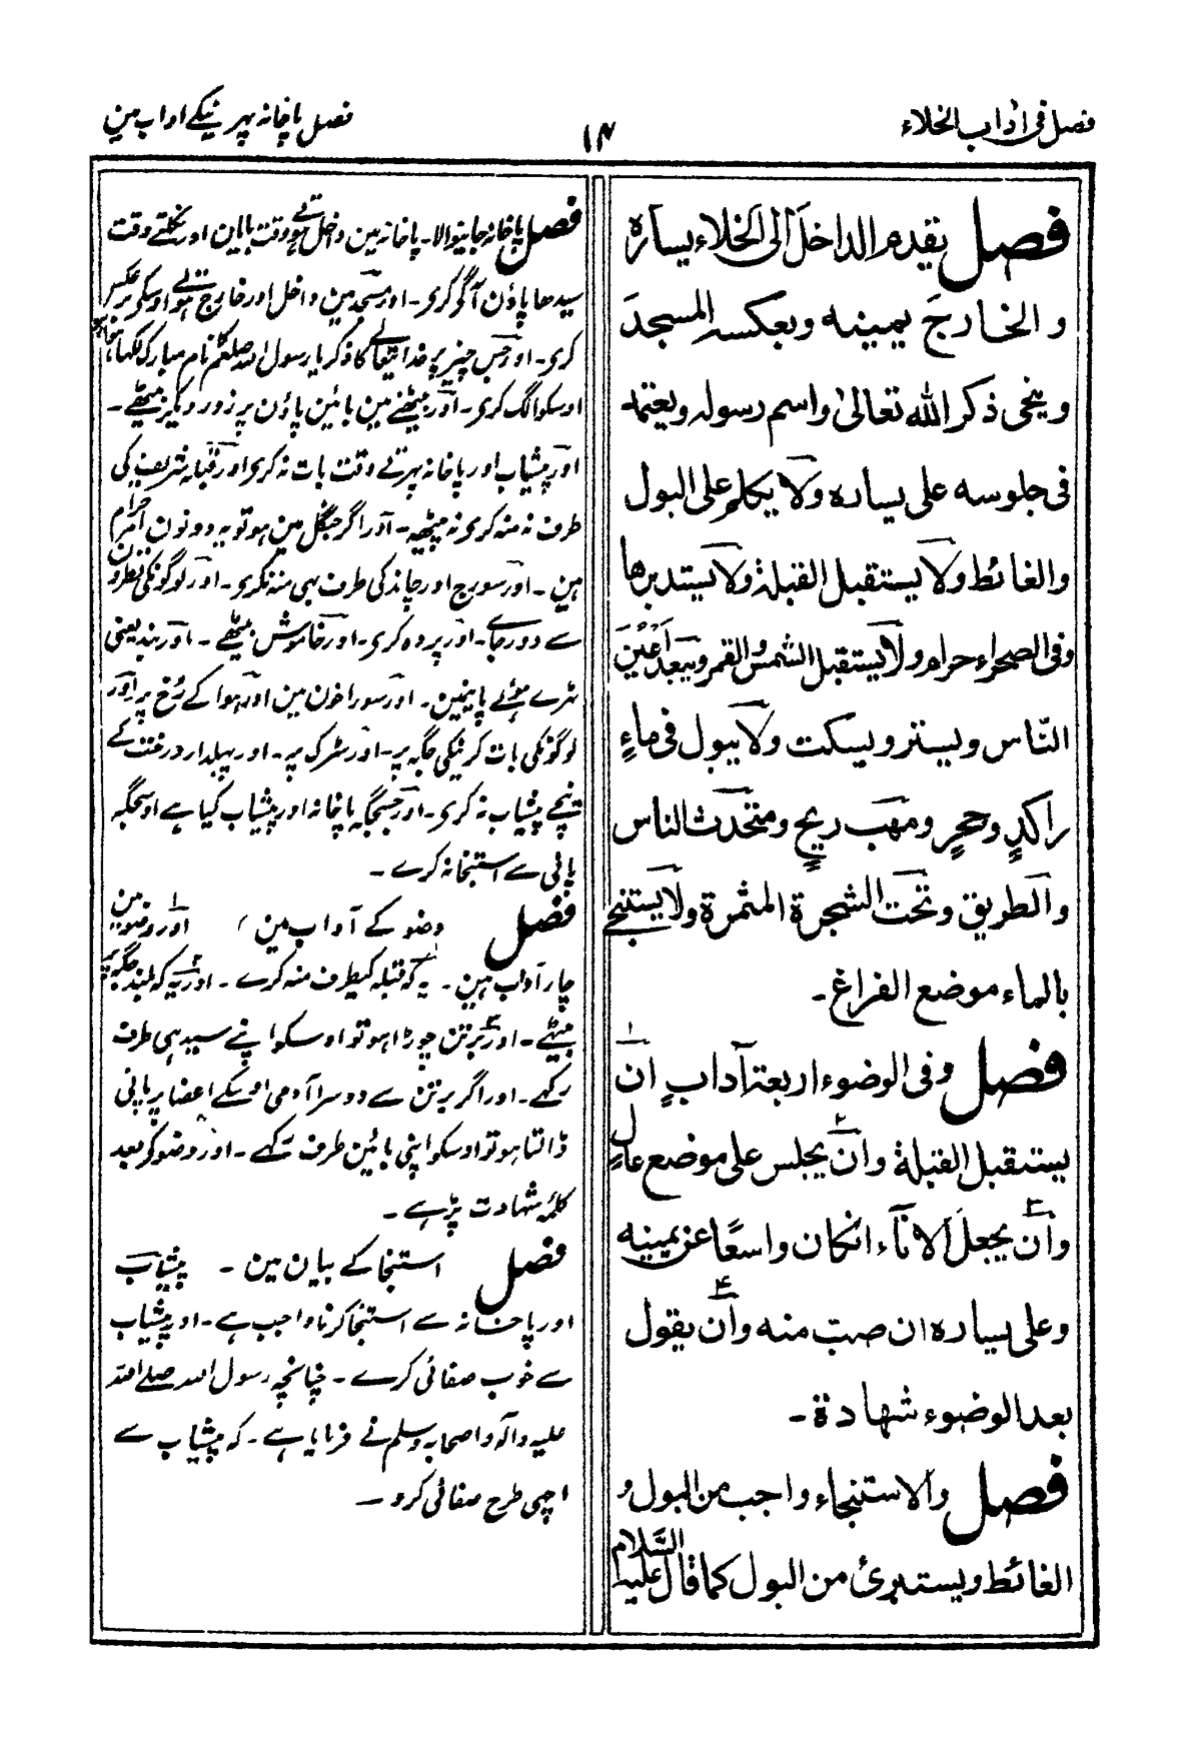 فصل فی آداب الخلاء
۱۴
فصل پاخانہ پھرنیکے اداب مین
فصل یقدم الداخل الی الخلاء یسارہ
والخارج یمینہ وبعکسہ المسجد
وینحی ذکر اللہ تعالیٰ واسم رسولہ ویعتمد
فی جلوسہ علی یسارہ ولا یکلم علی البول
والغائط ولا یستقبل القبلۃ ولا یستدبرھا
وفی الصحراء حرام ولا یستقبل الشمس والقمر ویبعد اعین
النّاس ویستتر ویسکت ولا یبول فی ماءٍ
راکدٍ وحجرٍ ومھب ریحٍ ومتحدث الناس
والطریق وتحت الشجرۃ المثمرۃ ولا یستنجے
بالماء موضع الفراغ۔
فصل وفی الوضوء اربعۃ آدابٍ ۱ ان
یستقبل القبلۃ ۲ وان یجلس علی موضع عالٍ
۳ وان یجعل الاناء انکان واسعًا عن یمینہ
وعلی یسارہ ان صب منہ ۴ وان یقول
بعد الوضوء شھادۃ۔
فصل والاستنجاء واجب من البول و
الغائط ویستبرئ من البول کما قال علیہ السَّلام
فصل پاخانہ جانیوالا۔ پاخانہ مین داخل ہوتے وقت بایان اور نکلتے وقت
سیدھا پاؤن آگو کری۔ اور مسجد مین داخل اور خارج ہوتے اوسکی برعکس
کری۔ اور جس چیز پر خدا تعالے کا ذکر یا رسول اللہ صلعم کا نام مبارک لکھا
اوسکو الگ کری۔ اور بیٹھنے مین بائین پاؤن پر زور دیکر بیٹھے۔
اور پیشاب اور پاخانہ پھرتے وقت بات نہ کری اور قبلہ شریف کی
طرف نہ منہ کری نہ پیٹھہ۔ اور اگر جنگل مین ہو تو یہ دونون امر حرام
ہین۔ اور سورج اور چاند کی طرف بھی منہ نکری۔ اور لوگونکی نظرون
سے دور جاے۔ اور پردہ کری۔ اور خاموش بیٹھے۔ اور بند یعنی
ٹرے ہوئے پانیمین۔ اور سوراخون مین اور ہوا کے رُخ پر اور
لوگونکی بات کرنیکی جگہ پر۔ اور سڑک پر۔ اور پھلدار درخت کے
نیچے پیشاب نہ کری۔ اور جسجگہ پاخانہ اور پیشاب کیا ہے اوسجگہ
پانی سے استنجا نہ کرے۔
فصل وضو کے آداب مین ) اور وضو مین
چار آداب ہین۔ ۱ یہ کہ قبلہ کیطرف منہ کرے۔ ۲ اور یہ کہ بلند جگہ پر
بیٹھے۔ ۳ اور برتن چوڑا ہو تو اوسکو اپنے سیدہی طرف
رکھے۔ اور اگر برتن سے دوسرا آدمی اوسکے اعضا پر پانی
ڈالتا ہو تو اوسکو اپنی بائین طرف رکھے۔ ۴ اور وضو کر بعد
کلمۂ شہادت پڑہے۔
فصل استنجا کے بیان مین۔ پیشاب
اور پاخانہ سے استنجا کرنا واجب ہے۔ اور پیشاب
سے خوب صفائی کرے۔ چنانچہ رسول اللہ صلے اللہ
علیہ وآلہ واصحابہ وسلم نے فرمایا ہے۔ کہ پیشاب سے
اچھی طرح صفائی کرو۔